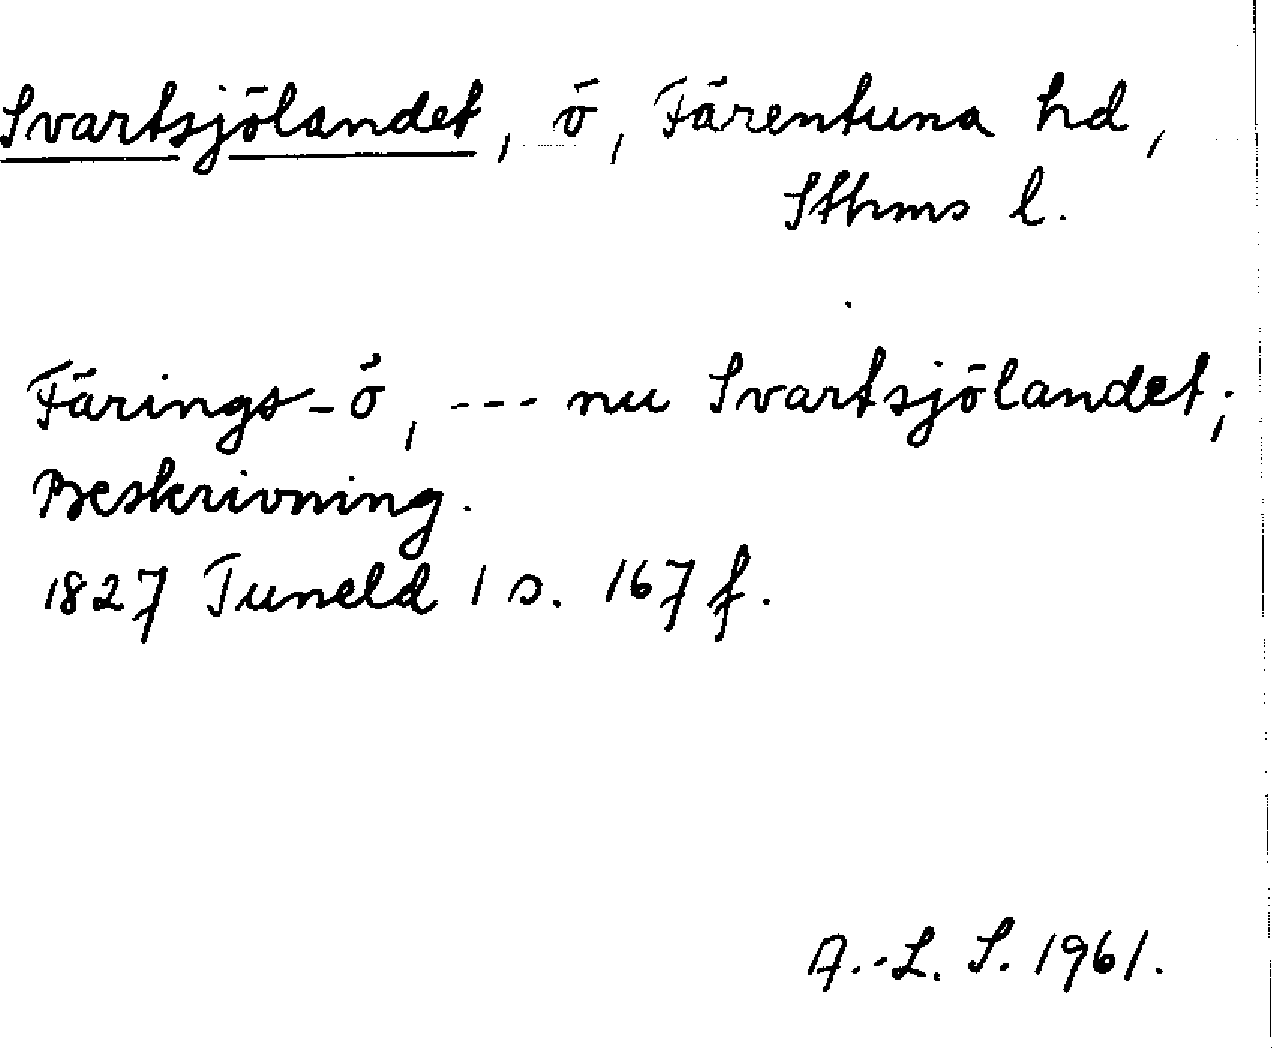 Svartsjölandet, ö, Färentuna hd,
Sthms l.
Färings-ö, --- nu Svartsjölandet;
Beskrivning.
1827 Tuneld 1 s. 167 f.
A.-L. S. 1961.